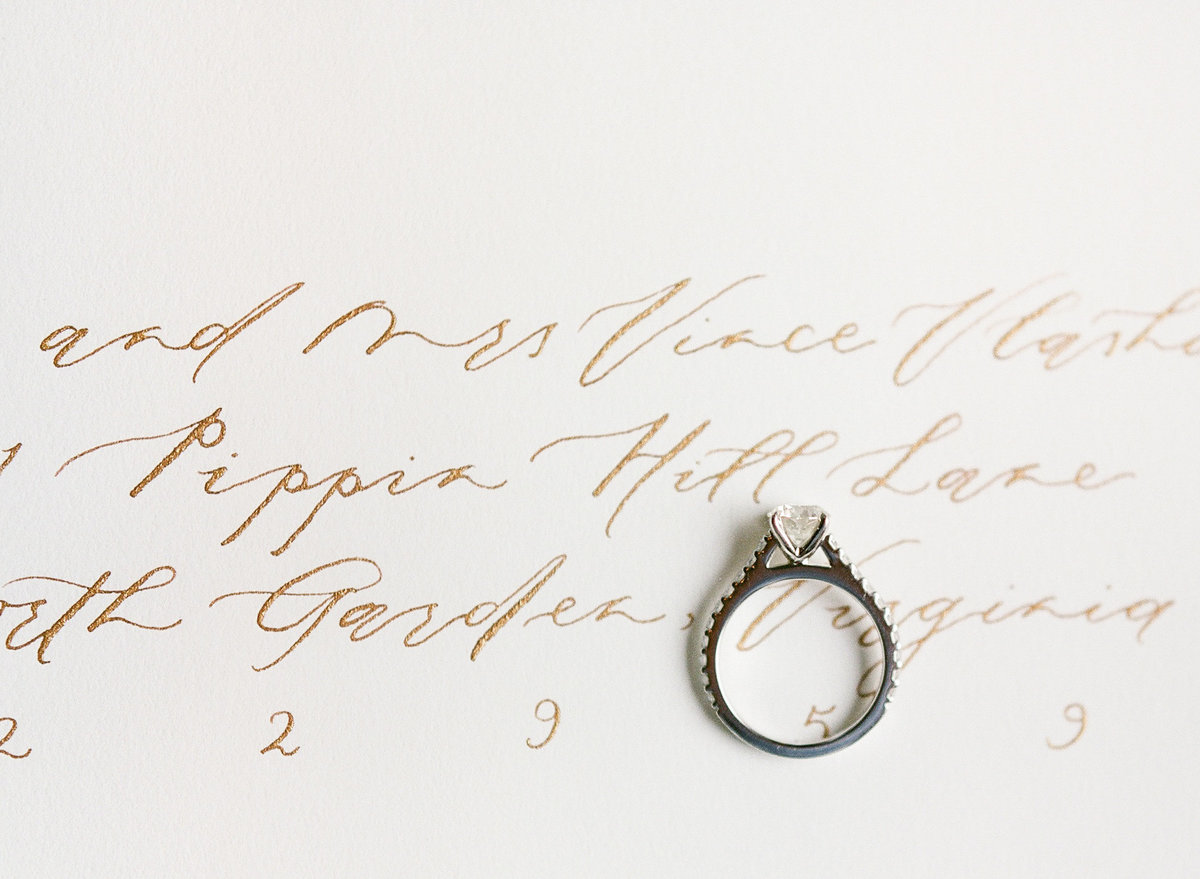 and Mrs Vince Vlasho
Pippin Hill Lane
orth Garden, Virginia
2 2 9 5 9